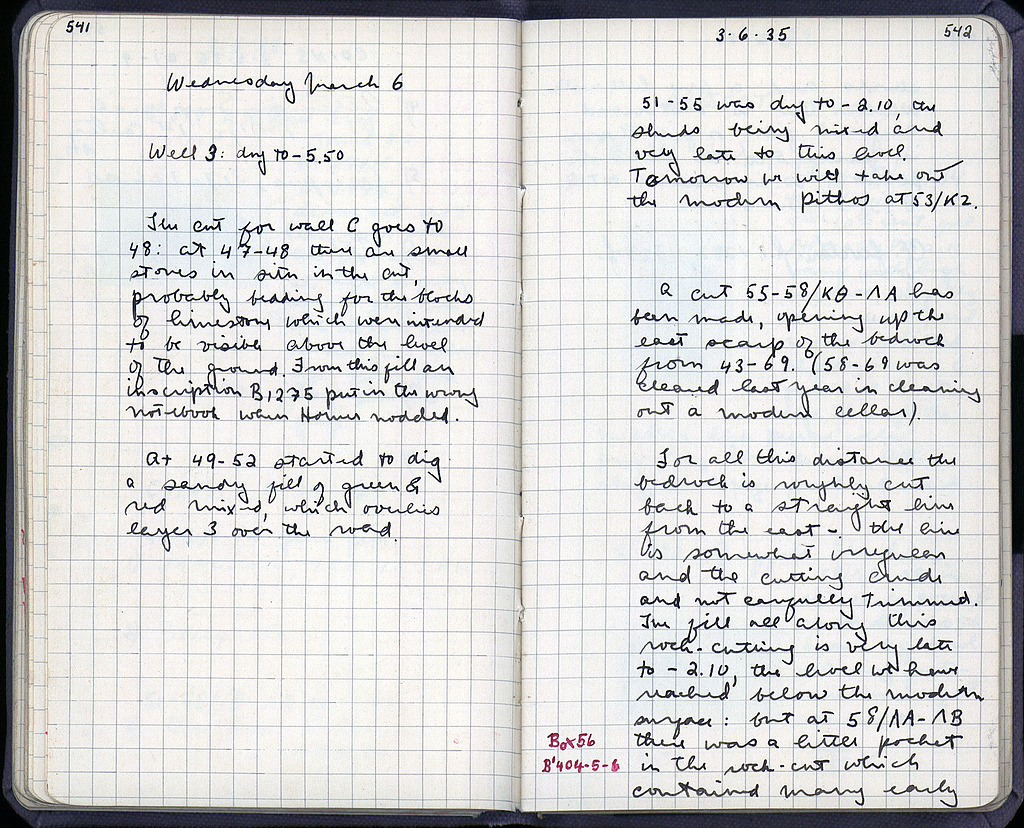 541
Wednesday March 6
Well 3: dug to - 5.50
The cut for wall C goes to
48: at 47-48 there are small
stones in situ in the cut,
probably bedding for the blocks
of limestone which were intended
to be visible above the level
of the ground. From this fill an
inscription B1275 put in the wrong
notebook when Homer nodded.
At 49-52 started to dig
a sandy fill of green &
red mixed, which overlies
layer 3 over the road.
3·6·35
542
51-55 was dug to - 2.10, the
sherds being mixed and
very late to this level.
Tomorrow we will take out
the modern pithos at 53/K2.
A cut 55-58/ΚΘ-ΛΑ has
been made, opening up the
east scarp of the bedrock
from 43-69. (58-69 was
cleared last year in cleaning
out a modern cellar).
For all this distance the
bedrock is roughly cut
back to a straight line
from the east -. the line
is somewhat irregular
and the cutting crude
and not carefully trimmed.
The fill all along this
rock-cutting is very late
to - 2.10, the level we have
reached below the modern
surface: but at 58/ΛΑ-ΛΒ
there was a little pocket
in the rock-cut which
contained many early
Box 56
B'404-5-6